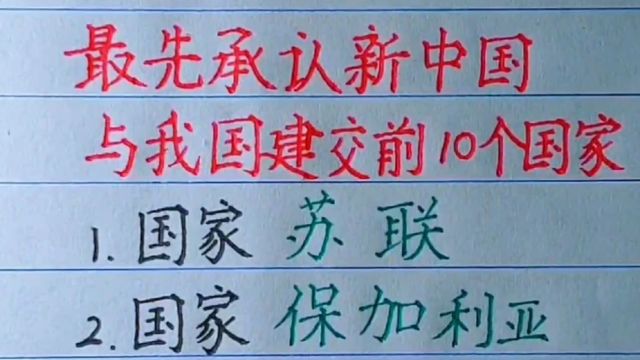 最先承认新中国
与我国建交前10个国家
1. 国家 苏联
2. 国家 保加利亚